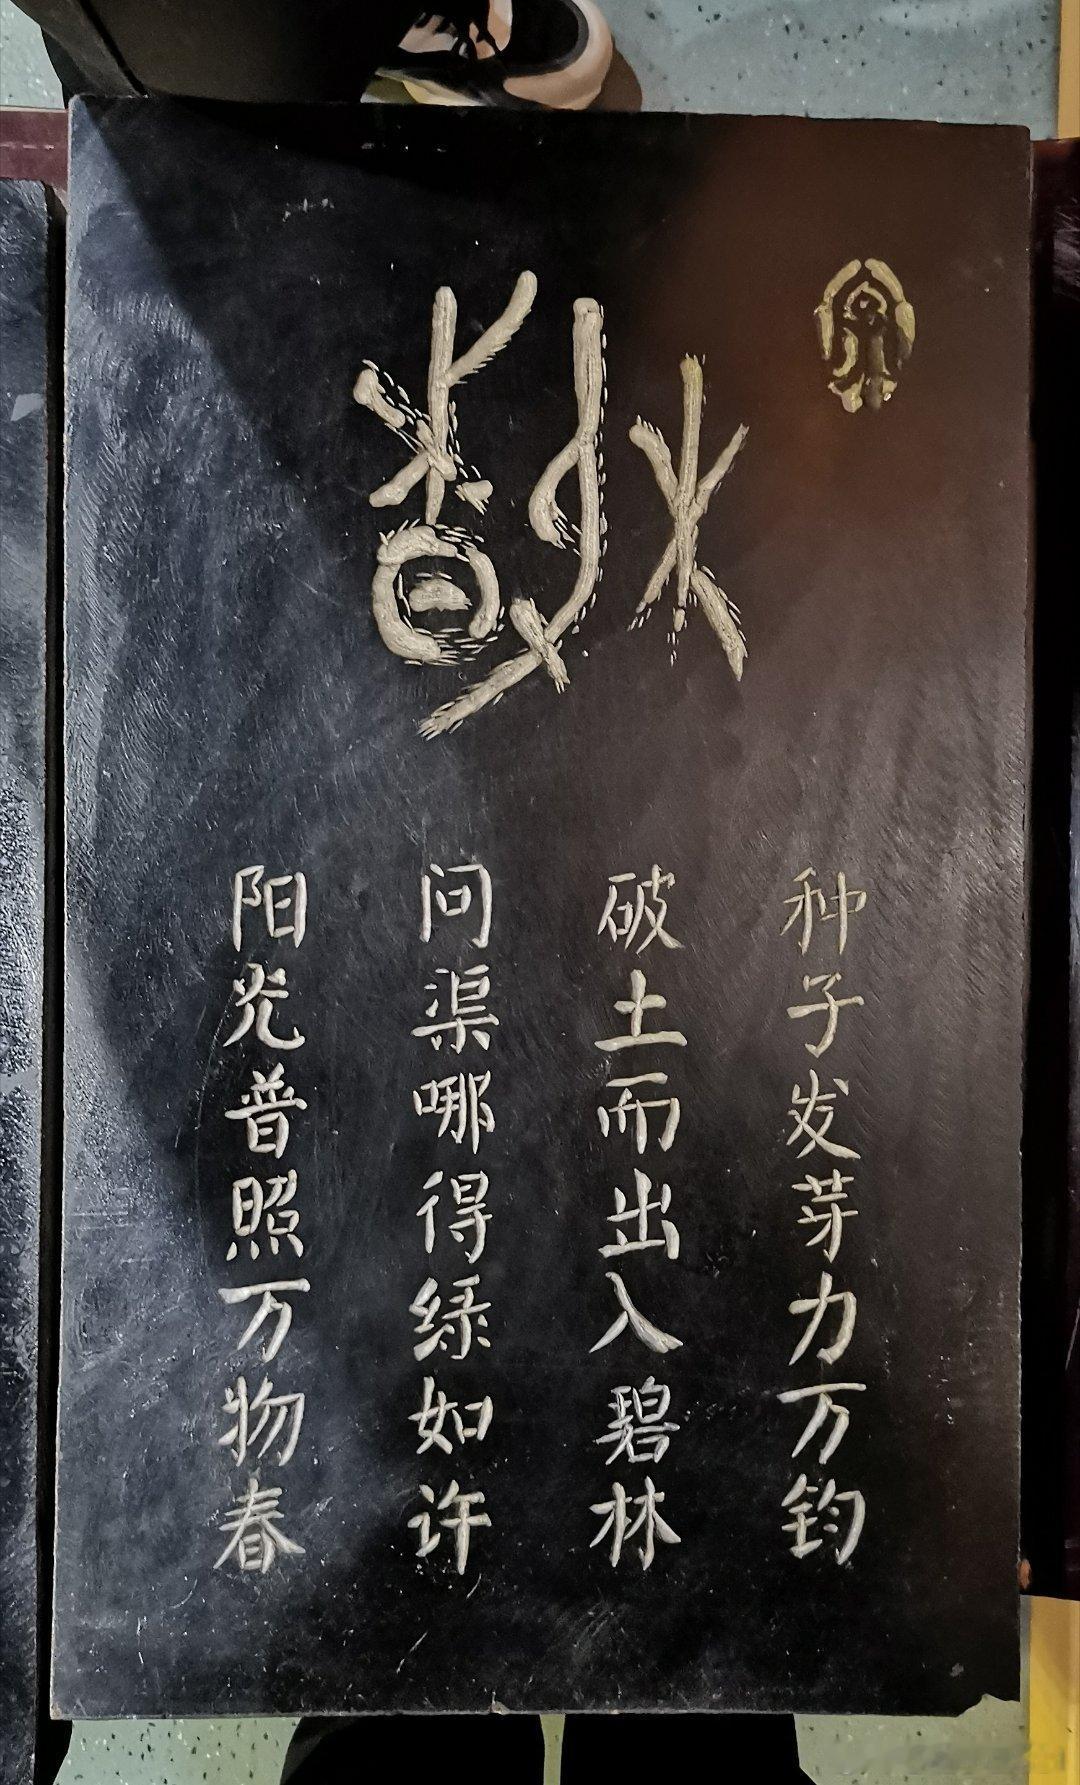 种子发芽力万钧
破土而出入碧林
问渠哪得绿如许
阳光普照万物春